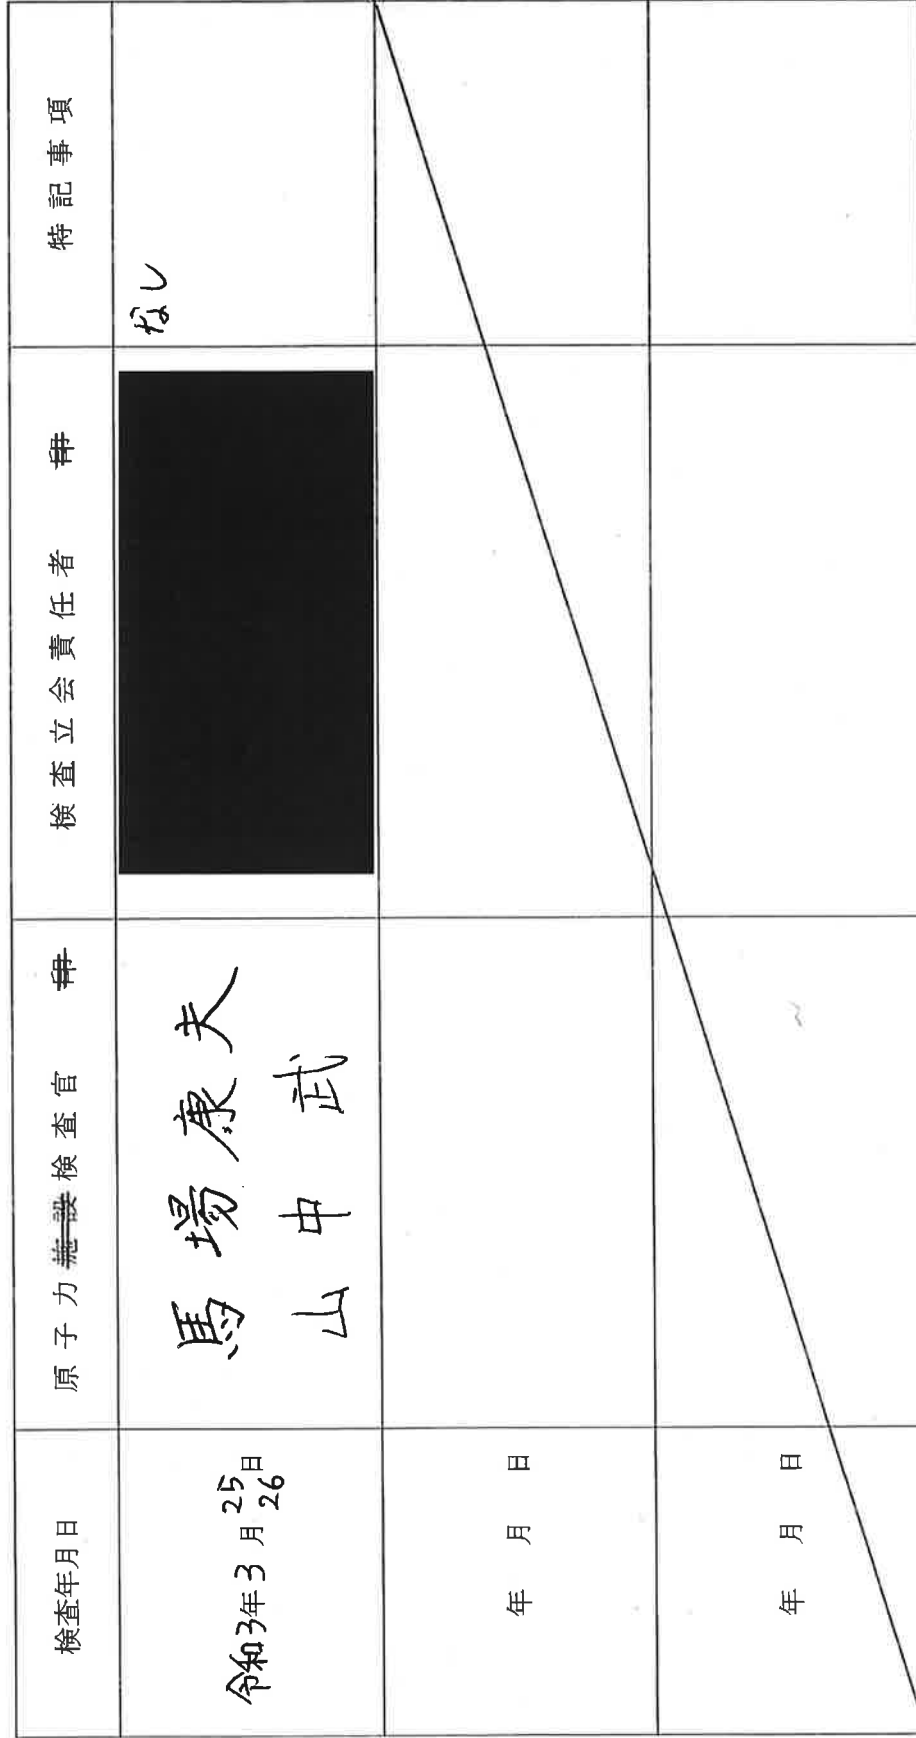 検査年月日
原子力施設検査官 印
検査立会責任者 印
特記事項
令和3年3月25日
26
馬場康夫
山中 武
なし
年 月 日
年 月 日